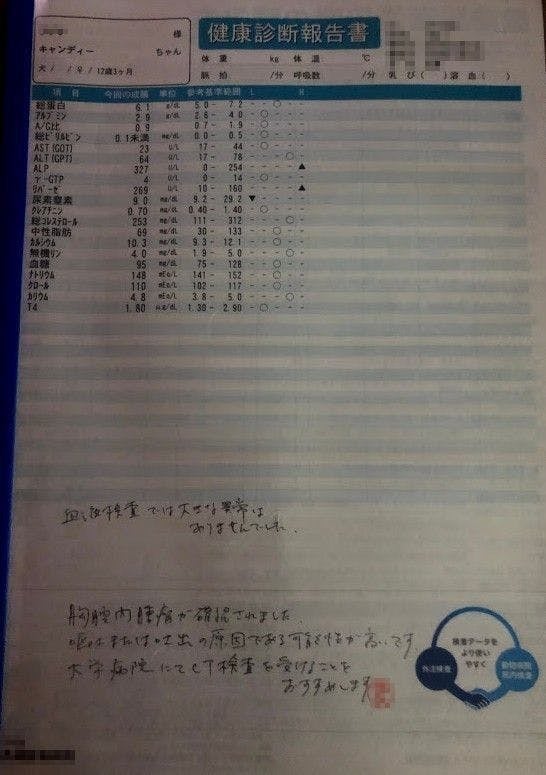 様
健康診断報告書
キャンディー ちゃん
体 重 kg 体 温 ℃
犬 / / ♀ / 12歳3ヶ月
脈 拍 /分 呼吸数 /分 乳 び ( ) 溶 血 ( )
項 目 今回の成績 単位 参考基準範囲 L H
総蛋白 6.1 g/dL 5.0 - 7.2 - ○ -
アルブミン 2.9 g/dL 2.6 - 4.0 - ○ -
A/G比 0.9 0.7 - 1.9 - ○ -
総ビリルビン 0.1未満 mg/dL 0.0 - 0.5 - ○ -
AST(GOT) 23 U/L 17 - 44 - ○ -
ALT(GPT) 64 U/L 17 - 78 - ○ -
ALP 327 U/L 0 - 254 - - ▲
γ-GTP 4 U/L 0 - 14 - ○ -
リパーゼ 269 U/L 10 - 160 - - ▲
尿素窒素 9.0 mg/dL 9.2 - 29.2 ▼ - -
クレアチニン 0.70 mg/dL 0.40 - 1.40 - ○ -
総コレステロール 253 mg/dL 111 - 312 - ○ -
中性脂肪 69 mg/dL 30 - 133 - ○ -
カルシウム 10.3 mg/dL 9.3 - 12.1 - ○ -
無機リン 4.0 mg/dL 1.9 - 5.0 - ○ -
血糖 95 mg/dL 75 - 128 - ○ -
ナトリウム 148 mEq/L 141 - 152 - ○ -
クロール 110 mEq/L 102 - 117 - ○ -
カリウム 4.8 mEq/L 3.8 - 5.0 - ○ -
T4 1.80 μg/dL 1.30 - 2.90 - ○ -
血液検査では大きな異常は
ありませんでした.
胸腔内腫瘤が確認されました.
嘔吐または吐出の原因である可能性が高いです
大学病院にてCT検査を受けることを
おすすめします
検査データを
より使い
やすく
外注検査
動物病院
院内検査